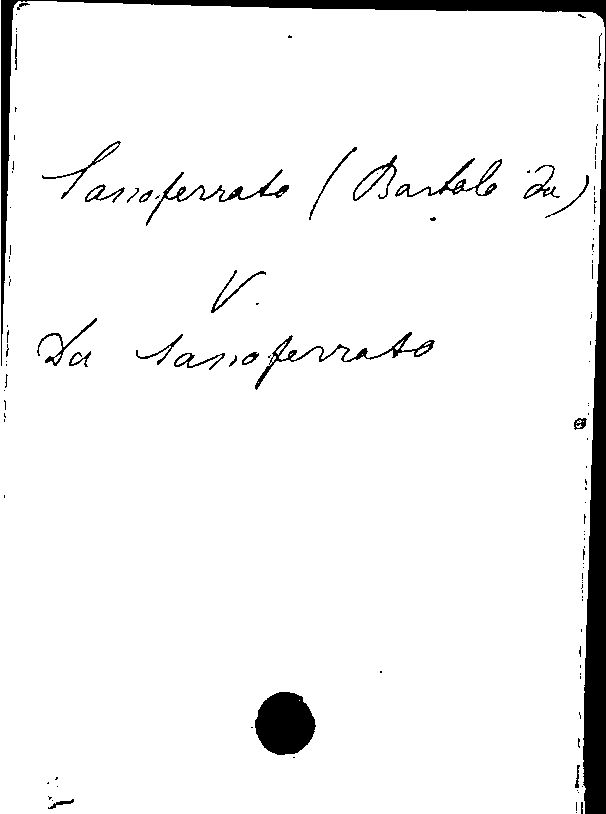 Sassoferrato (Bartolo da)
V.
Da Sassoferrato